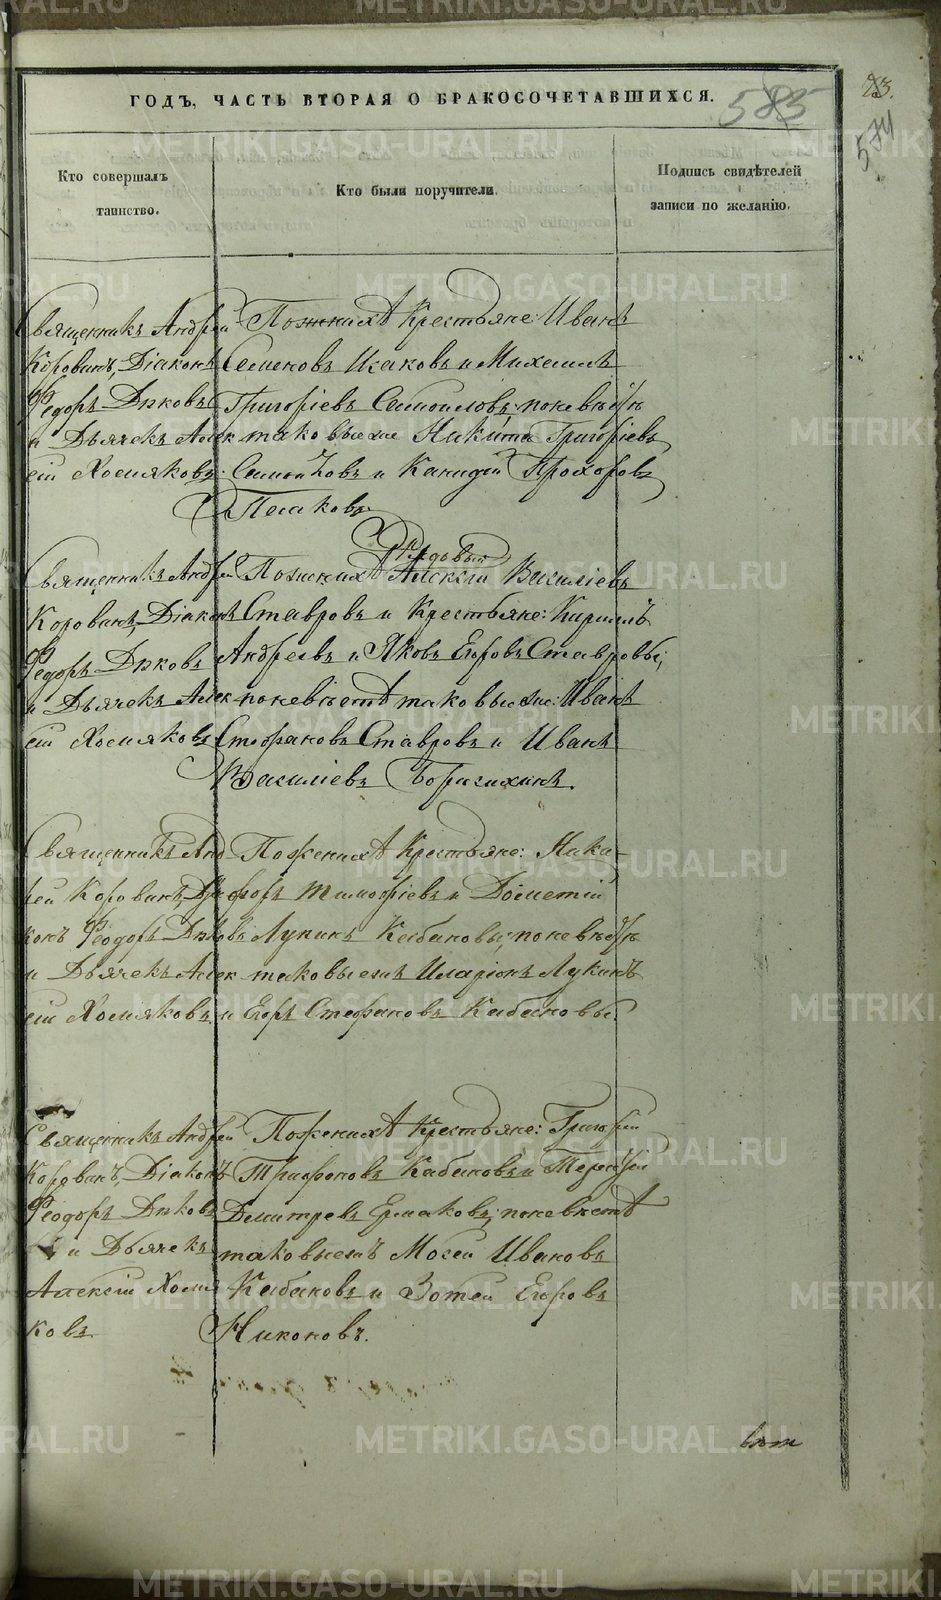 ГОДЪ, ЧАСТЬ ВТОРАЯ О БРАКОСОЧЕТАВШИХСЯ.
585
23.
574
Кто совершалъ
таинство.
Кто были поручители.
Подпись свидѣтелей
записи по желанію.
Священникъ Андрей
Коровинъ, Діаконъ
Феодоръ Дьковъ
и Дьячекъ Алек
сій Хомяковъ.
По женихѣ Крестьяне: Иванъ
Семеновъ и Михаилъ
Григоріевъ Самойловъ; по невѣстѣ
таковыеже Никита Григоріевъ
и Прохоровъ
Священникъ Андрей
Коровинъ, Діаконъ
Феодоръ Дьковъ
и Дьячекъ Алек
сій Хомяковъ
Рядовый
По женихѣ Алексѣй Василіевъ
Ставровъ и Крестьяне: Кириллъ
Андреевъ и Яковъ Егоровъ Ставровы;
по невѣстѣ таковыеже: Иванъ
Стефановъ Ставровъ и Иванъ
Василіевъ
Священникъ Анд
рей Коровинъ, Діа
конъ Феодоръ Дьковъ
и Дьячекъ Алек
сій Хомяковъ
По женихѣ Крестьяне: Ники-
форъ Тимофіевъ и Дометій
Лупинъ Кабановы; по невѣстѣ
таковыежъ Иларіонъ Лукинъ
и Егоръ Стефановъ Кабановы
Священникъ Андрей
Коровинъ, Діаконъ
Феодоръ Дьковъ
и Дьячекъ
Алексій Хомя
ковъ
По женихѣ Крестьяне: Григорій
Трифоновъ Кабановъ и Терентій
Дмитревъ Ермаковъ; по невѣстѣ
таковыежъ Мосей Ивановъ
Кабановъ и Зотей Егоровъ
Никоновъ.
METRIKI.GASO-URAL.RU